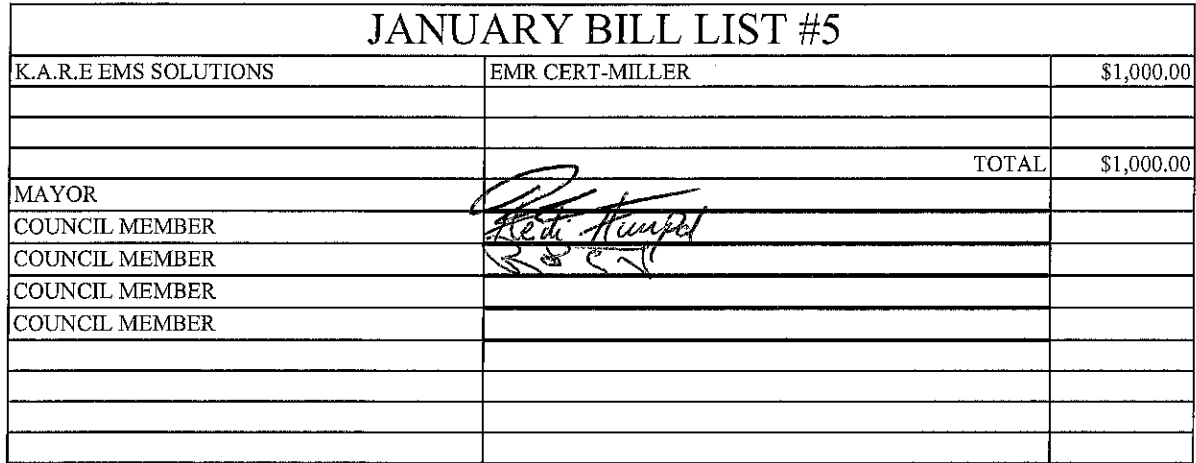 JANUARY BILL LIST #5
K.A.R.E EMS SOLUTIONS EMR CERT-MILLER $1,000.00
TOTAL $1,000.00
MAYOR
COUNCIL MEMBER
COUNCIL MEMBER
COUNCIL MEMBER
COUNCIL MEMBER